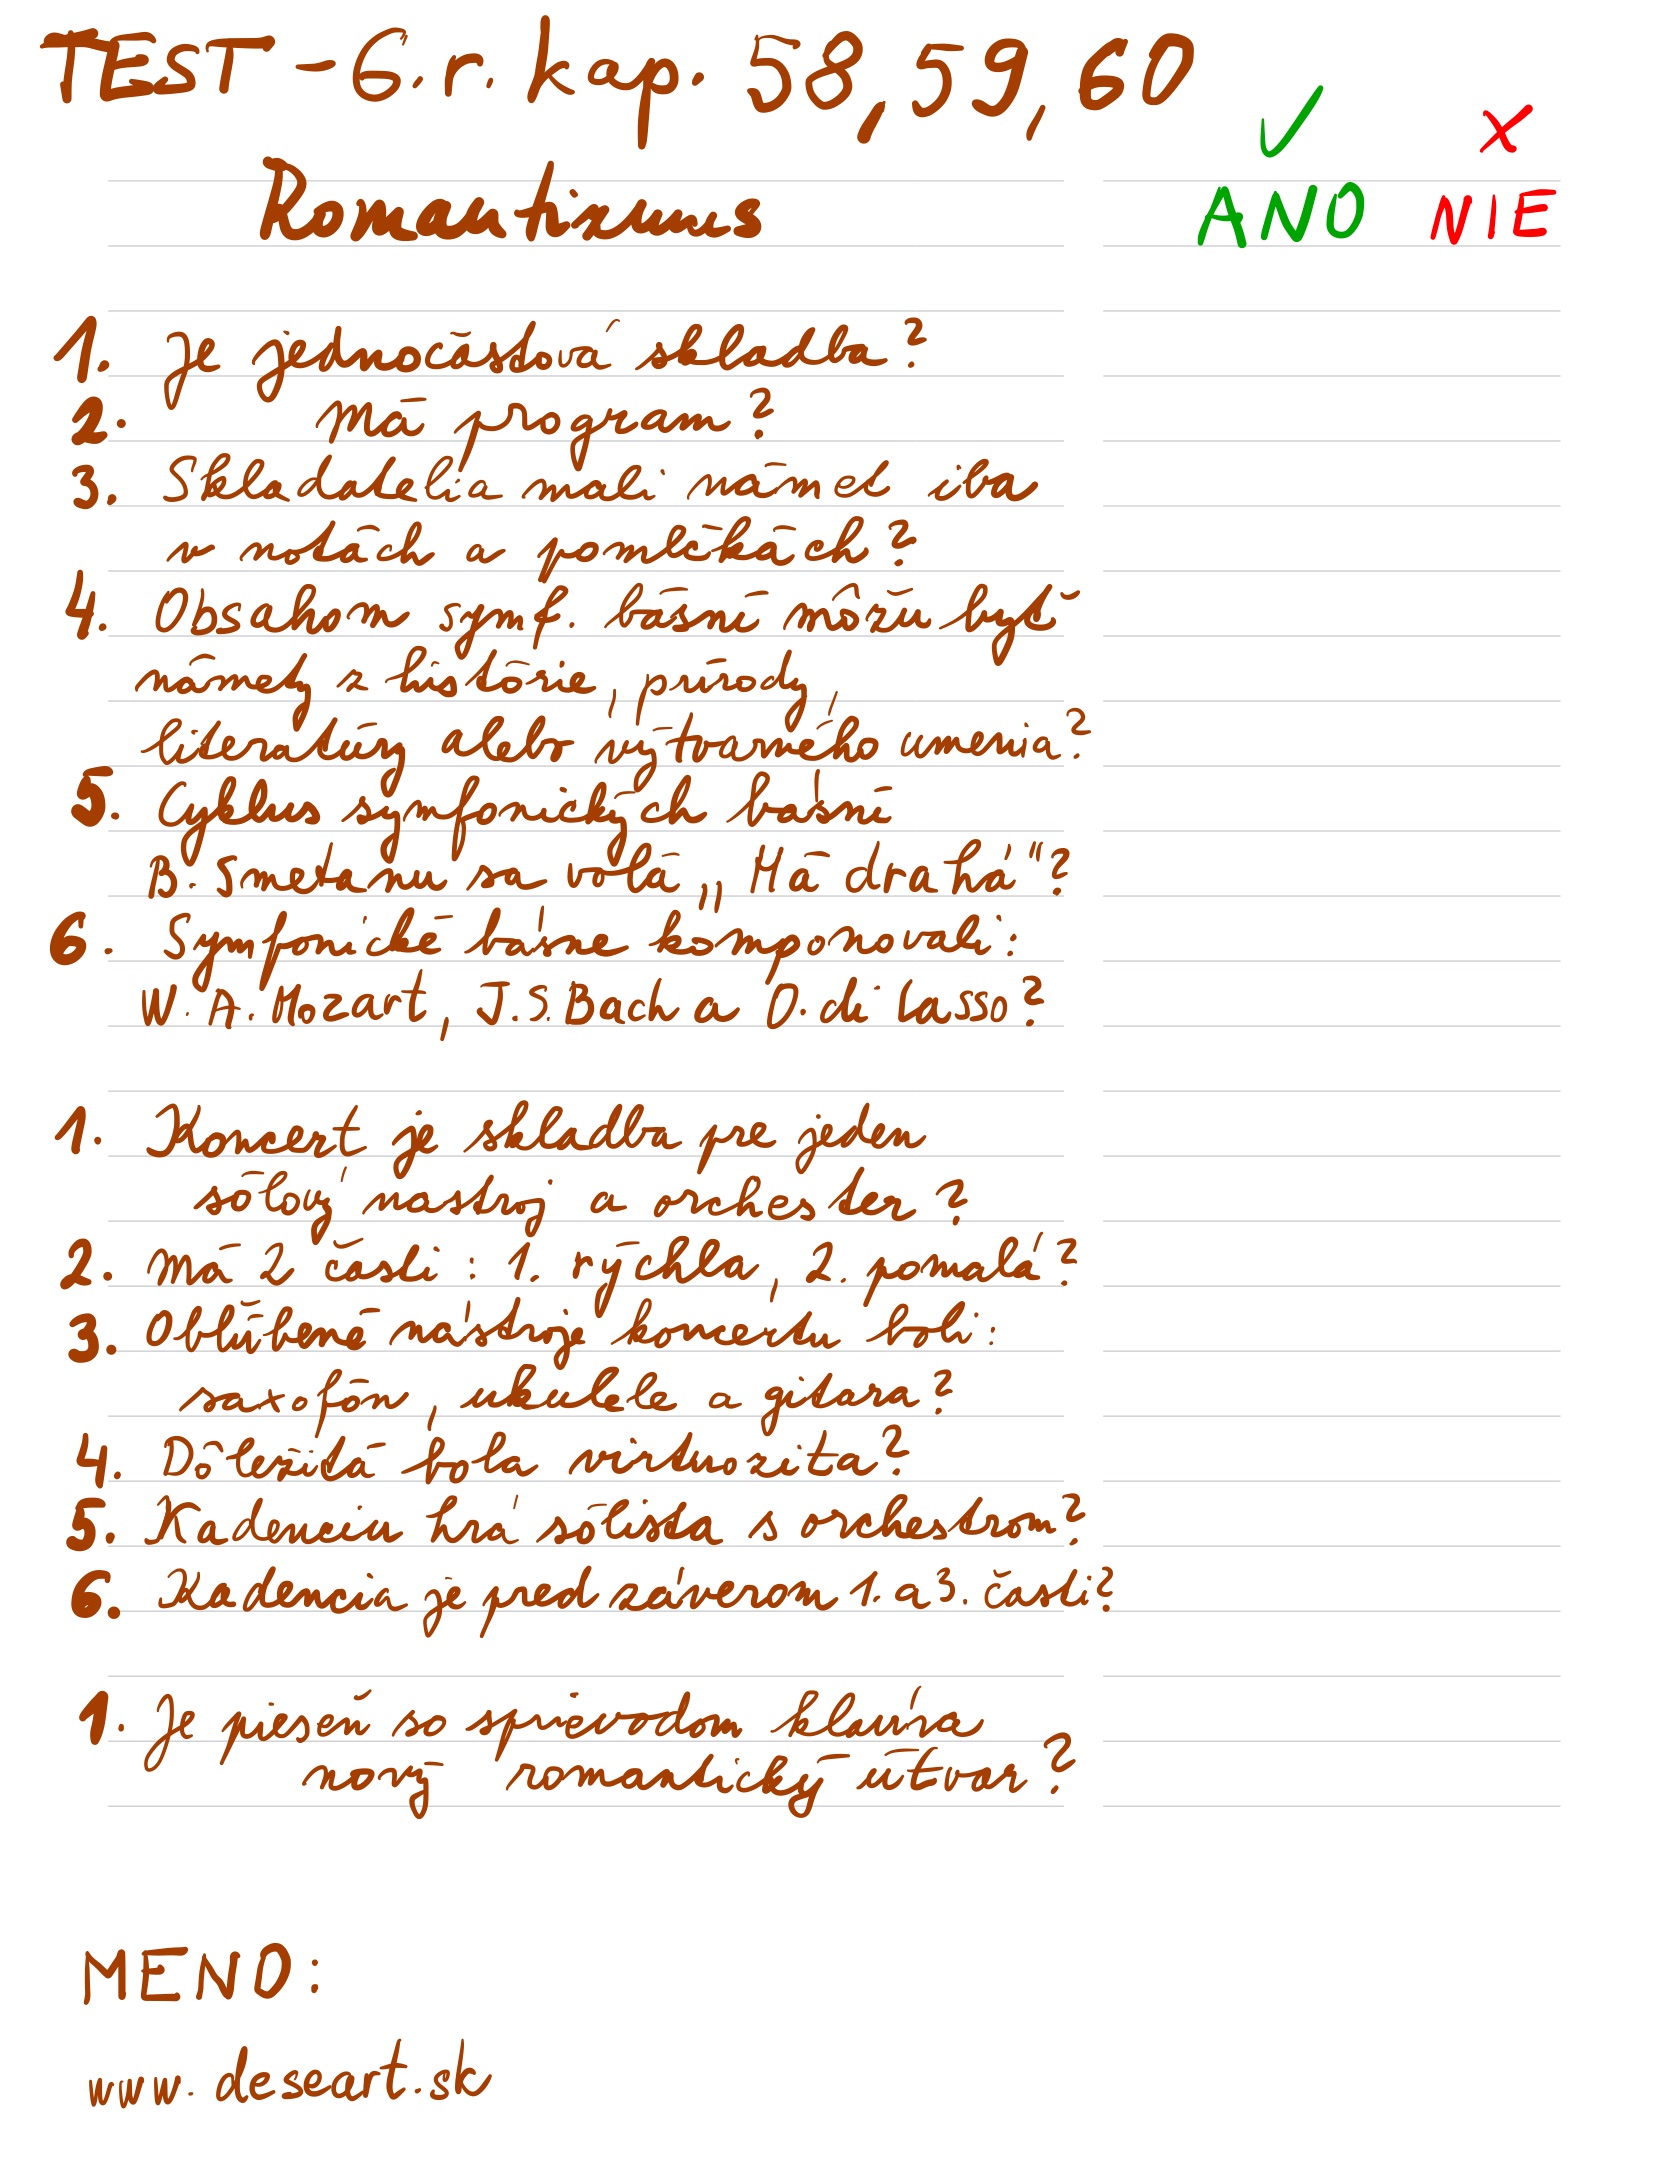 TEST - 6.r. kap. 58, 59, 60
Romantizmus
ANO NIE
1. Je jednočasťová skladba?
2. Má program?
3. Skladatelia mali námet iba
v notách a pomlčkách?
4. Obsahom symf. básní môžu byť
námety z histórie, prírody,
literatúry alebo výtvarného umenia?
5. Cyklus symfonických básní
B. Smetanu sa volá „Má drahá"?
6. Symfonické básne komponovali:
W. A. Mozart, J.S. Bach a O. di Lasso?
1. Koncert je skladba pre jeden
sólový nástroj a orchester?
2. Má 2 časti: 1. rýchla, 2. pomalá?
3. Obľúbené nástroje koncertu boli:
saxofón, ukulele a gitara?
4. Dôležitá bola virtuozita?
5. Kadenciu hrá sólista s orchestrom?
6. Kadencia je pred záverom 1. a 3. časti?
1. Je pieseň so sprievodom klavíra
nový romantický útvar?
MENO:
www.deseart.sk